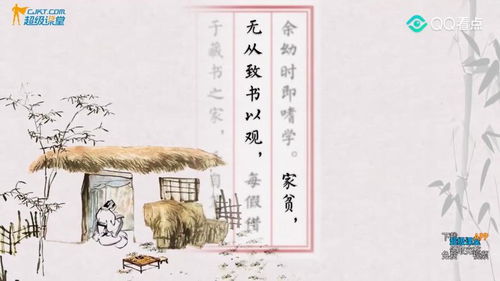 CJKT.COM
超级课堂
QQ看点
余幼时即嗜学。家贫，
无从致书以观，每假借
于藏书之家，
下载
超级课堂
APP